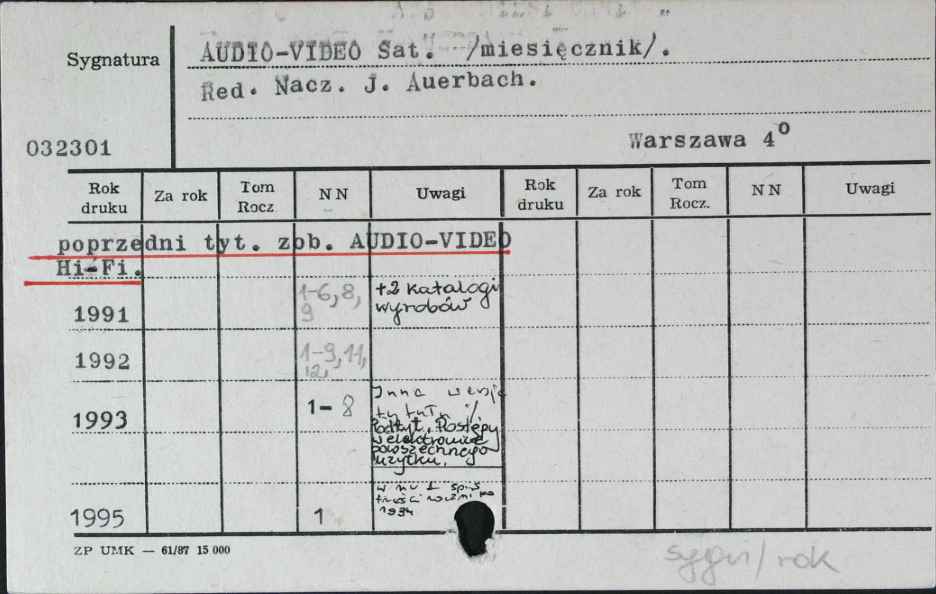 Sygnatura
AUDIO-VIDEO Sat. /miesięcznik/.
Red. Nacz. J. Auerbach.
032301
Warszawa 4⁰
Rok druku Za rok Tom Rocz NN Uwagi Rok druku Za rok Tom Rocz. NN Uwagi
poprzedni tyt. zob. AUDIO-VIDEO
Hi-Fi.
1991 1-6,8, 9 +2 katalogi wyrobów
1992 1-9,11, 12,
1993 1- 8 Inna wersja tytułu :/ Podtyt. Postępy w elektronice powszechnego użytku.
1995 1 w nr 1 spis treści rocznika 1994
ZP UMK — 61/87 15 000
sygn/rok